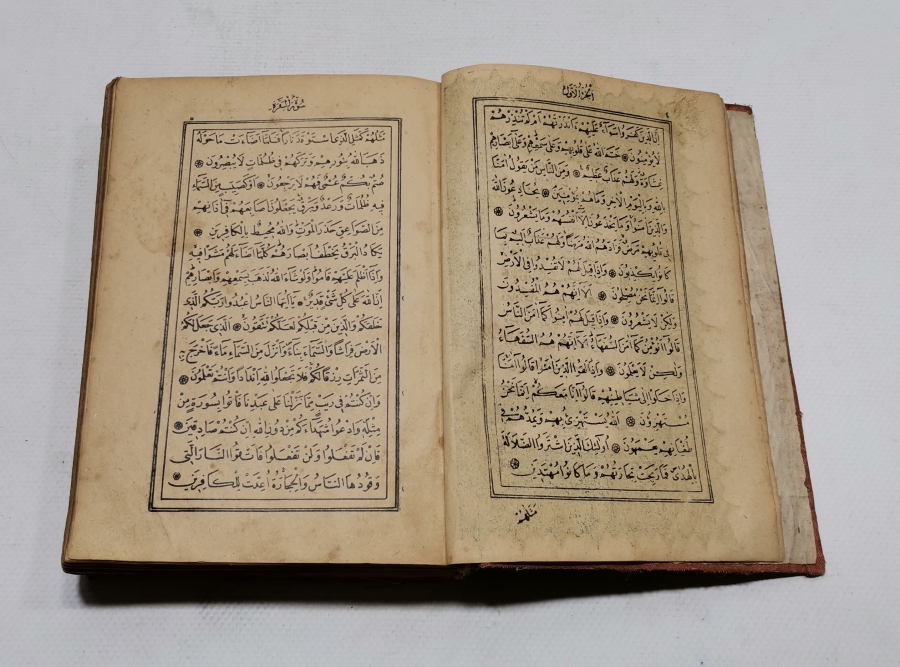 الجزء الأول
اِنَّ الَّذِينَ كَفَرُوا سَوَاءٌ عَلَيْهِمْ ءَاَنْذَرْتَهُمْ اَمْ لَمْ تُنْذِرْهُمْ
لَا يُؤْمِنُونَ خَتَمَ اللّٰهُ عَلٰى قُلُوبِهِمْ وَعَلٰى سَمْعِهِمْ وَعَلٰى اَبْصَارِهِمْ
غِشَاوَةٌ وَلَهُمْ عَذَابٌ عَظِيمٌ وَمِنَ النَّاسِ مَنْ يَقُولُ اٰمَنَّا
بِاللّٰهِ وَبِالْيَوْمِ الْاٰخِرِ وَمَا هُمْ بِمُؤْمِنِينَ يُخَادِعُونَ اللّٰهَ
وَالَّذِينَ اٰمَنُوا وَمَا يَخْدَعُونَ اِلَّا اَنْفُسَهُمْ وَمَا يَشْعُرُونَ
فِي قُلُوبِهِمْ مَرَضٌ فَزَادَهُمُ اللّٰهُ مَرَضًا وَلَهُمْ عَذَابٌ اَلِيمٌ بِمَا
كَانُوا يَكْذِبُونَ وَاِذَا قِيلَ لَهُمْ لَا تُفْسِدُوا فِي الْاَرْضِ
قَالُوا اِنَّمَا نَحْنُ مُصْلِحُونَ اَلَا اِنَّهُمْ هُمُ الْمُفْسِدُونَ
وَلٰكِنْ لَا يَشْعُرُونَ وَاِذَا قِيلَ لَهُمْ اٰمِنُوا كَمَا اٰمَنَ النَّاسُ
قَالُوا اَنُؤْمِنُ كَمَا اٰمَنَ السُّفَهَاءُ اَلَا اِنَّهُمْ هُمُ السُّفَهَاءُ
وَلٰكِنْ لَا يَعْلَمُونَ وَاِذَا لَقُوا الَّذِينَ اٰمَنُوا قَالُوا اٰمَنَّا
وَاِذَا خَلَوْا اِلٰى شَيَاطِينِهِمْ قَالُوا اِنَّا مَعَكُمْ اِنَّمَا نَحْنُ
مُسْتَهْزِؤُنَ اَللّٰهُ يَسْتَهْزِئُ بِهِمْ وَيَمُدُّهُمْ فِي
طُغْيَانِهِمْ يَعْمَهُونَ اُولٰئِكَ الَّذِينَ اشْتَرَوُا الضَّلَالَةَ
بِالْهُدٰى فَمَا رَبِحَتْ تِجَارَتُهُمْ وَمَا كَانُوا مُهْتَدِينَ
مثلهم
سورة البقرة
مَثَلُهُمْ كَمَثَلِ الَّذِي اسْتَوْقَدَ نَارًا فَلَمَّا اَضَاءَتْ مَا حَوْلَهُ
ذَهَبَ اللّٰهُ بِنُورِهِمْ وَتَرَكَهُمْ فِي ظُلُمَاتٍ لَا يُبْصِرُونَ
صُمٌّ بُكْمٌ عُمْيٌ فَهُمْ لَا يَرْجِعُونَ اَوْ كَصَيِّبٍ مِنَ السَّمَاءِ
فِيهِ ظُلُمَاتٌ وَرَعْدٌ وَبَرْقٌ يَجْعَلُونَ اَصَابِعَهُمْ فِي اٰذَانِهِمْ
مِنَ الصَّوَاعِقِ حَذَرَ الْمَوْتِ وَاللّٰهُ مُحِيطٌ بِالْكَافِرِينَ
يَكَادُ الْبَرْقُ يَخْطَفُ اَبْصَارَهُمْ كُلَّمَا اَضَاءَ لَهُمْ مَشَوْا فِيهِ
وَاِذَا اَظْلَمَ عَلَيْهِمْ قَامُوا وَلَوْ شَاءَ اللّٰهُ لَذَهَبَ بِسَمْعِهِمْ وَاَبْصَارِهِمْ
اِنَّ اللّٰهَ عَلٰى كُلِّ شَيْءٍ قَدِيرٌ يَا اَيُّهَا النَّاسُ اعْبُدُوا رَبَّكُمُ الَّذِي
خَلَقَكُمْ وَالَّذِينَ مِنْ قَبْلِكُمْ لَعَلَّكُمْ تَتَّقُونَ اَلَّذِي جَعَلَ لَكُمُ
الْاَرْضَ فِرَاشًا وَالسَّمَاءَ بِنَاءً وَاَنْزَلَ مِنَ السَّمَاءِ مَاءً فَاَخْرَجَ بِهِ
مِنَ الثَّمَرَاتِ رِزْقًا لَكُمْ فَلَا تَجْعَلُوا لِلّٰهِ اَنْدَادًا وَاَنْتُمْ تَعْلَمُونَ
وَاِنْ كُنْتُمْ فِي رَيْبٍ مِمَّا نَزَّلْنَا عَلٰى عَبْدِنَا فَاْتُوا بِسُورَةٍ مِنْ
مِثْلِهِ وَادْعُوا شُهَدَاءَكُمْ مِنْ دُونِ اللّٰهِ اِنْ كُنْتُمْ صَادِقِينَ
فَاِنْ لَمْ تَفْعَلُوا وَلَنْ تَفْعَلُوا فَاتَّقُوا النَّارَ الَّتِي
وَقُودُهَا النَّاسُ وَالْحِجَارَةُ اُعِدَّتْ لِلْكَافِرِينَ